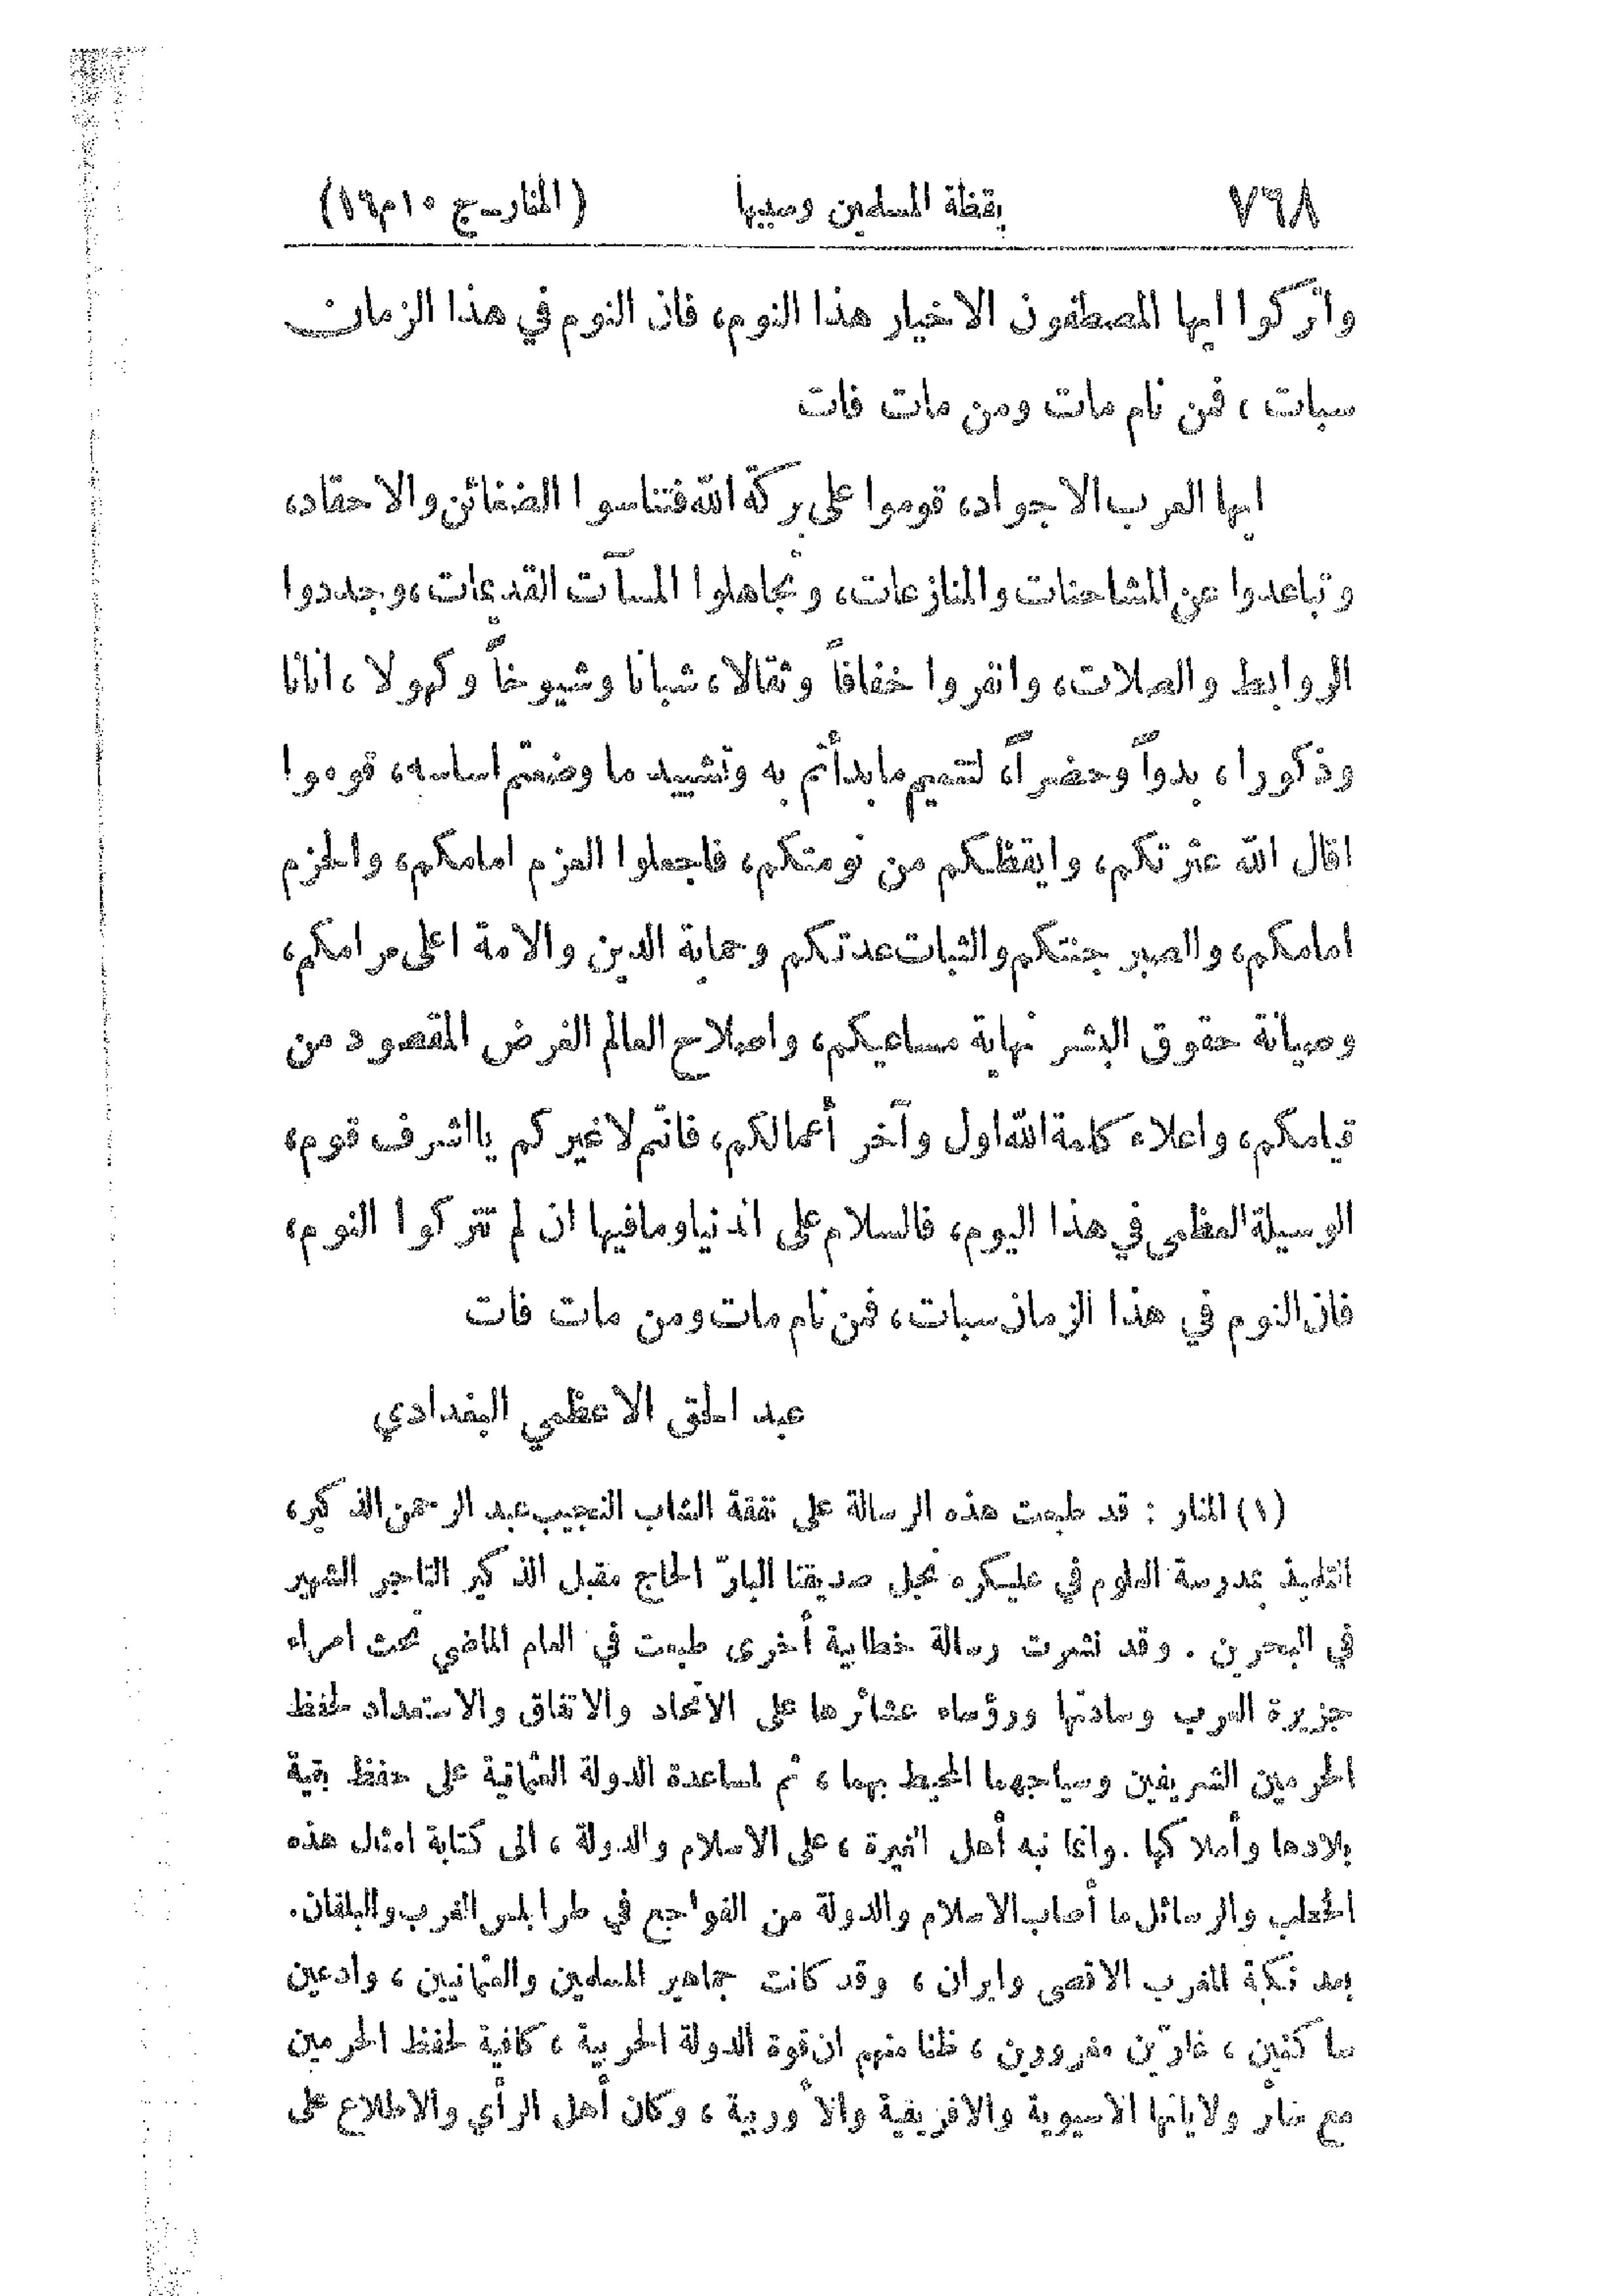 ٧٦٨ يقظة المسلمين وسببها (المنار ـ ج ١٠ م ١٦)
واتركوا ايها المصطفون الاخيار هذا النوم، فان النوم في هذا الزمان
سبات ، فمن نام مات ومن مات فات
ايها العرب الاجواد، قوموا على بركة الله فتناسوا الضغائن والاحقاد،
وتباعدوا عن المشاحنات والمنازعات، وتجاهلوا المسآت القديمات، وجددوا
الروابط والصلات، وانفروا خفافاً وثقالا، شبانا وشيوخاً وكهولا ، اناثا
وذكورا ، بدواً وحضراً، لتتميم ما بدأتم به وتشييد ما وضعتم اساسه، قوموا
اقال الله عثرتكم، وايقظكم من نومتكم، فاجعلوا العزم امامكم، والحزم
امامكم، والصبر جنتكم والثبات عدتكم وحماية الدين والامة اعلى مرامكم،
وصيانة حقوق البشر نهاية مساعيكم، واصلاح العالم الغرض المقصود من
قيامكم، واعلاء كلمة الله اول وآخر أعمالكم، فانتم لاغيركم يا اشرف قوم،
الوسيلة العظمى في هذا اليوم، فالسلام على الدنيا ومافيها ان لم تتركوا النوم،
فان النوم في هذا الزمان سبات، فمن نام مات ومن مات فات
عبد الحق الاعظمي البغدادي
(١) المنار : قد طبعت هذه الرسالة على نفقة الشاب النجيب عبد الرحمن الذكير،
التلميذ بمدرسة العلوم في عليكره نجل صديقنا البارّ الحاج مقبل الذكير التاجر الشهير
في البحرين . وقد نشرت رسالة خطابية أخرى طبعت في العام الماضي تحث امراء
جزيرة العرب وسادتها ورؤساء عشائرها على الاتحاد والاتفاق والاستعداد لحفظ
الحرمين الشريفين وسياجهما المحيط بهما ، ثم لمساعدة الدولة العثمانية على حفظ بقية
بلادها وأملاكها . وانما نبه أهل الغيرة ، على الاسلام والدولة ، الى كتابة امثال هذه
الخطب والرسائل ما أصاب الاسلام والدولة من الفواجع في طرابلس الغرب والبلقان.
بعد نكبة المغرب الاقصى وايران ، وقد كانت جماهير المسلمين والعثمانيين ، وادعين
ساكنين ، غارّين مغرورين ، ظنا منهم ان قوة الدولة الحربية ، كافية لحفظ الحرمين
مع سائر ولاياتها الاسيوية والافريقية والأوربية ، وكان أهل الرأي والاطلاع على